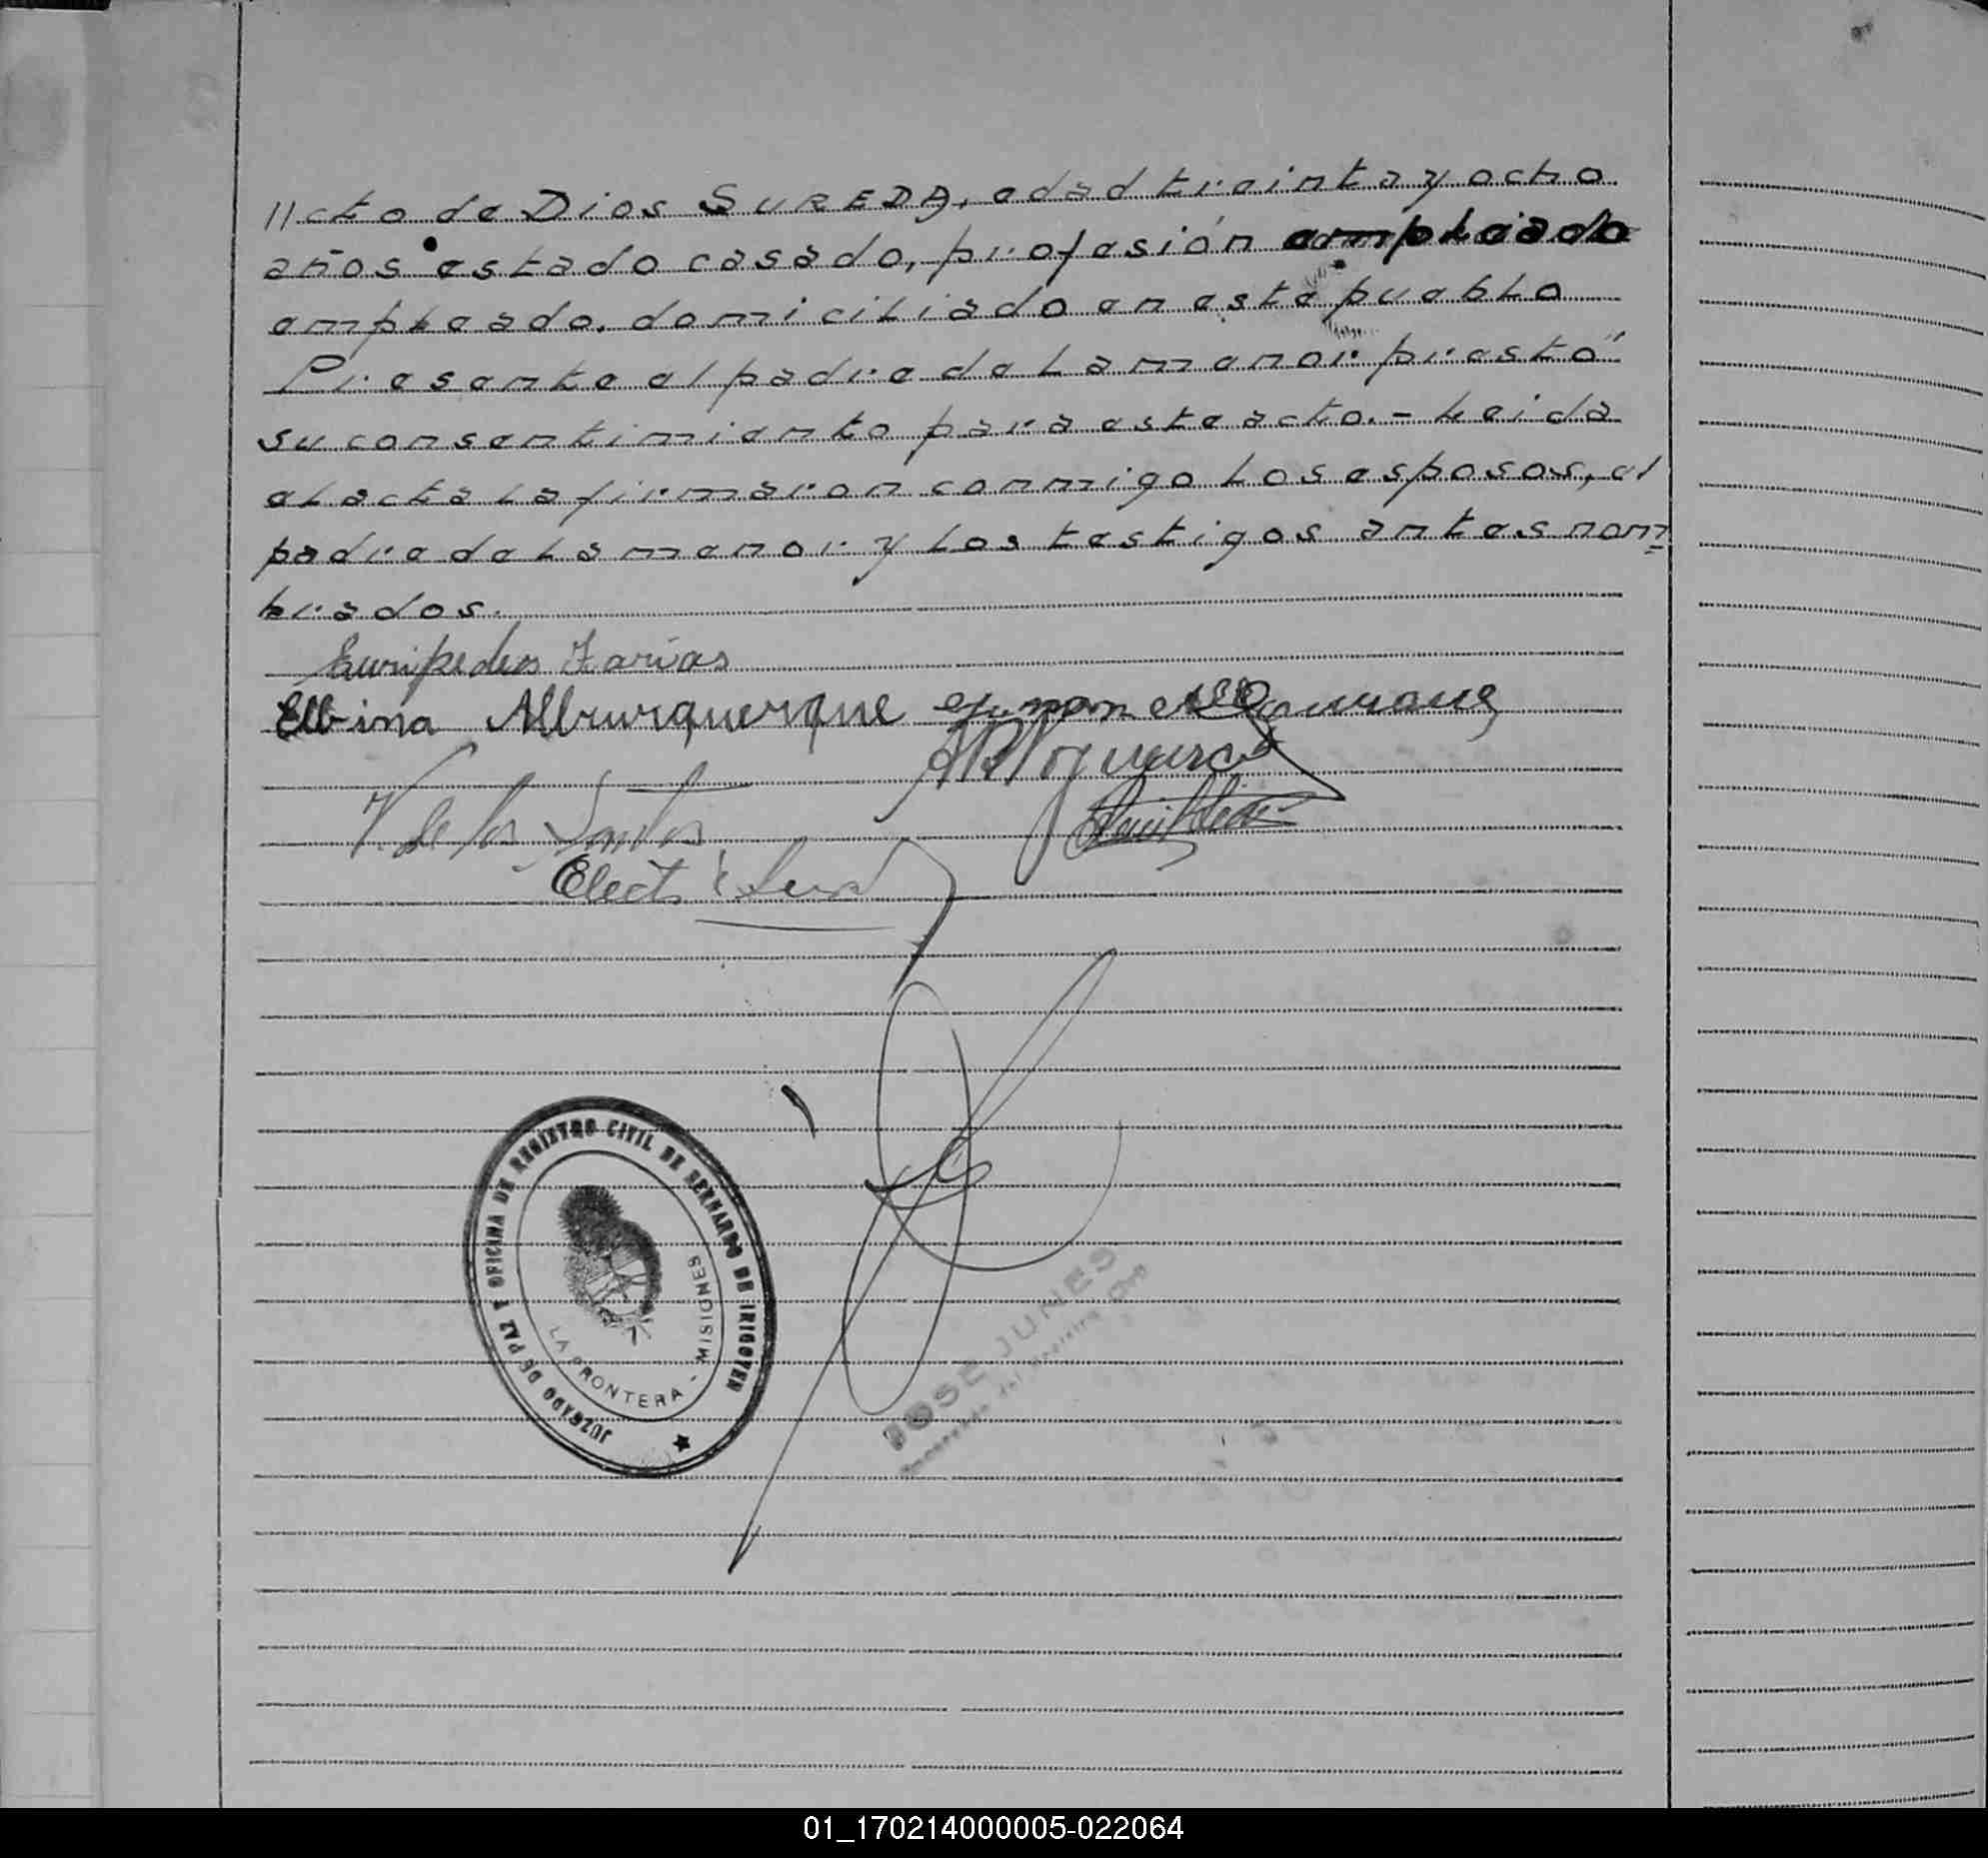 //cto de Dios SUREDA, edad treinta y ocho
años estado casado, profesión empleado
empleado, domiciliado en este pueblo
Presente el padre de la menor prestó
su consentimiento para este acto.- Leida
el acta la firmaron conmigo los esposos, el
padre de la menor y los testigos antes nom=
brados.
Euripedes Farias
Elbina Allrurquerque
V. de los Santos
JUZGADO DE PAZ Y OFICINA DE REGISTRO CIVIL DE BERNARDO DE IRIGOYEN
LA FRONTERA - MISIONES
JOSE JUNES
Encargado del Registro Civil
01_170214000005-022064